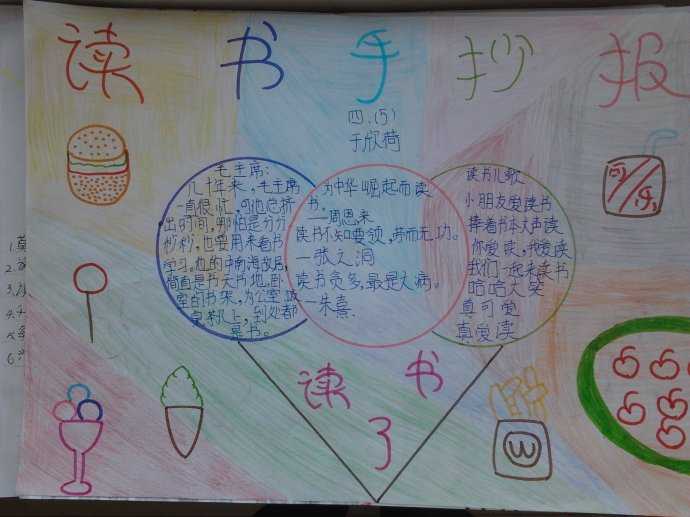 读书手抄报
四.(5)
于欣荷
毛主席:
几十年来,毛主席
一直很忙,可他总挤
出时间,哪怕是分分
秒秒,也要用来看书
学习。他的中南海故居,
简直是书天书地。卧
室的书架,办公室
桌、茶几上,到处都
是书。
为中华崛起而读
书。
—周恩来
读书不知要领,劳而无功。
—张之洞
读书贪多,最是大病。
—朱熹.
读书儿歌
小朋友爱读书
捧着书本大声读
你爱读,我爱读
我们一起来读书
哈哈大笑
真可爱
真爱读
读 书
了
W